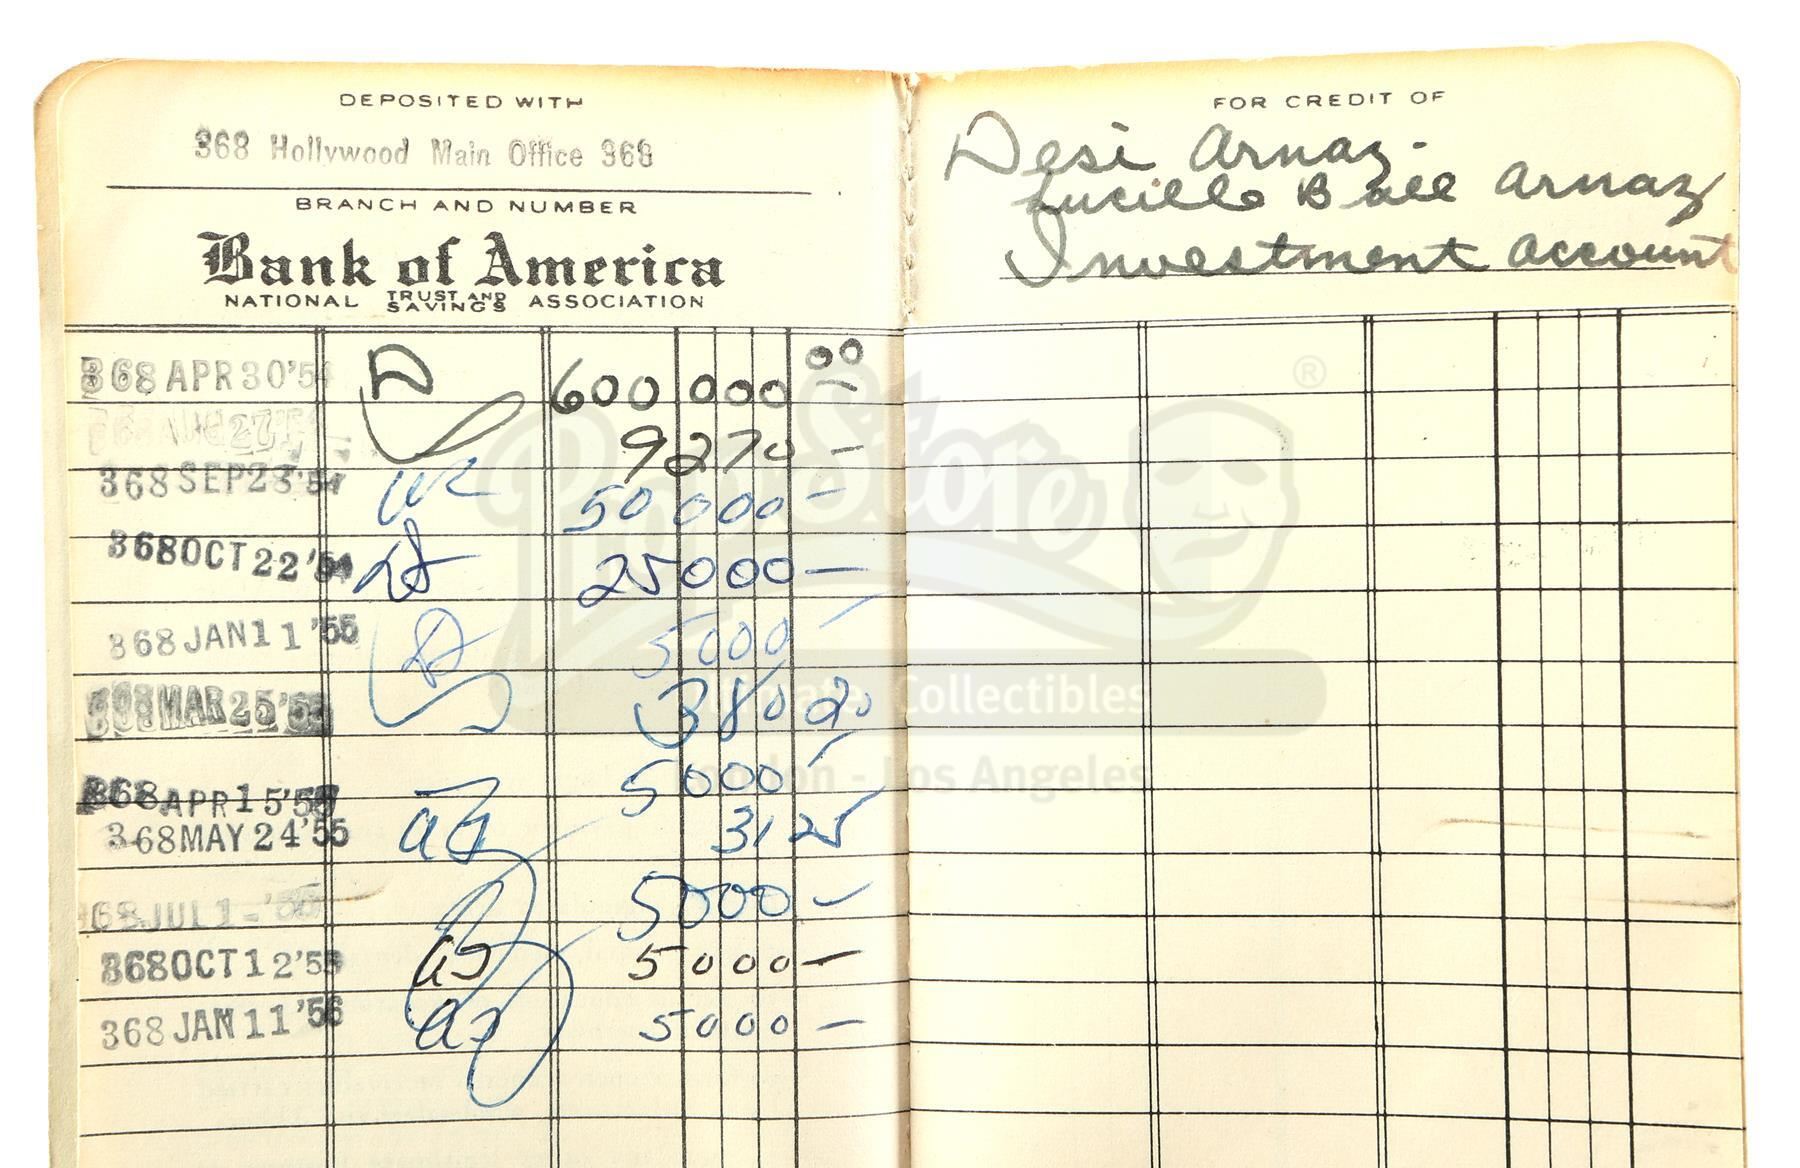 DEPOSITED WITH
368 Hollywood Main Office 368
BRANCH AND NUMBER
Bank of America
NATIONAL TRUST AND SAVINGS ASSOCIATION
FOR CREDIT OF
Desi Arnaz.
Lucille Ball Arnaz
Investment account
368 APR 30 '54 600 000 00
AUG 27 '5 9270 -
368 SEP 28 '54 50 000 -
368 OCT 22 '54 25000 -
368 JAN 11 '55 5000 -
368 MAR 25 '55 380 20
368 APR 15 '55 5000 -
368 MAY 24 '55 31 25
68 JUL 1 - '55 5000 -
368 OCT 12 '55 5000 -
368 JAN 11 '56 5000 -
PropStore ®
Ultimate Collectibles
London - Los Angeles